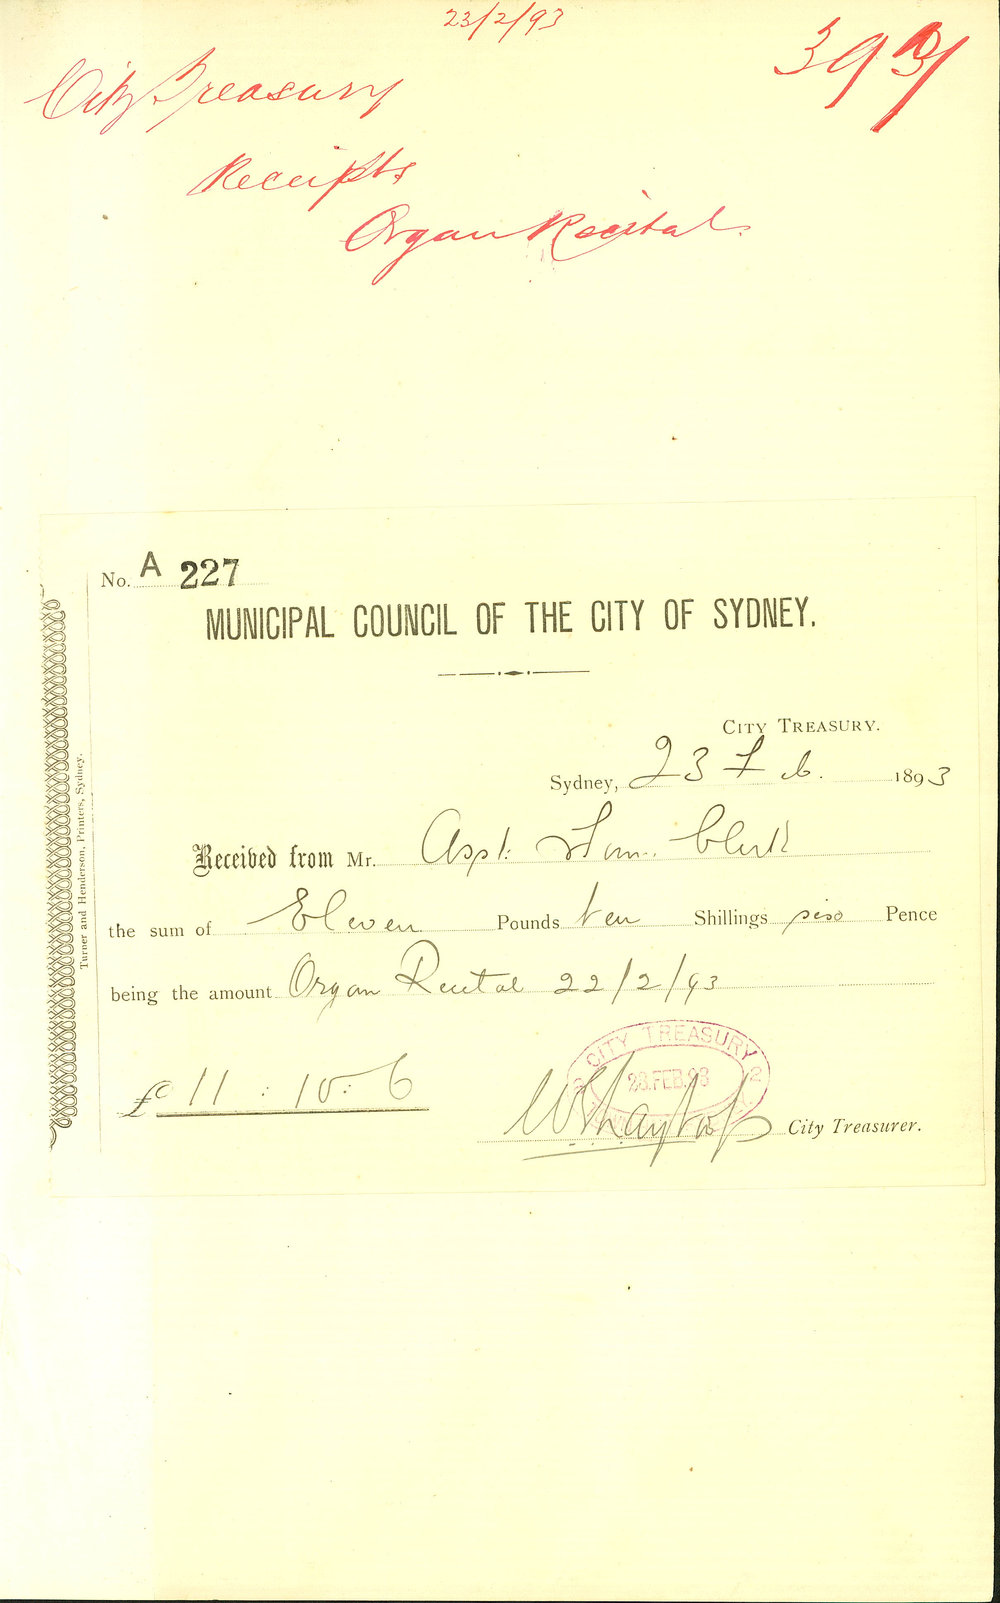 23/2/93
City Treasury
Receipts
Organ Recital
No. A 227
MUNICIPAL COUNCIL OF THE CITY OF SYDNEY.
CITY TREASURY.
Sydney, 23 Feb. 1893
Received from Mr. Asst. Town Clerk
the sum of Eleven Pounds ten Shillings six Pence
being the amount Organ Recital 22/2/93
CITY TREASURY
23.FEB.93
£ 11 : 10 : 6
City Treasurer.
Turner and Henderson, Printers, Sydney.